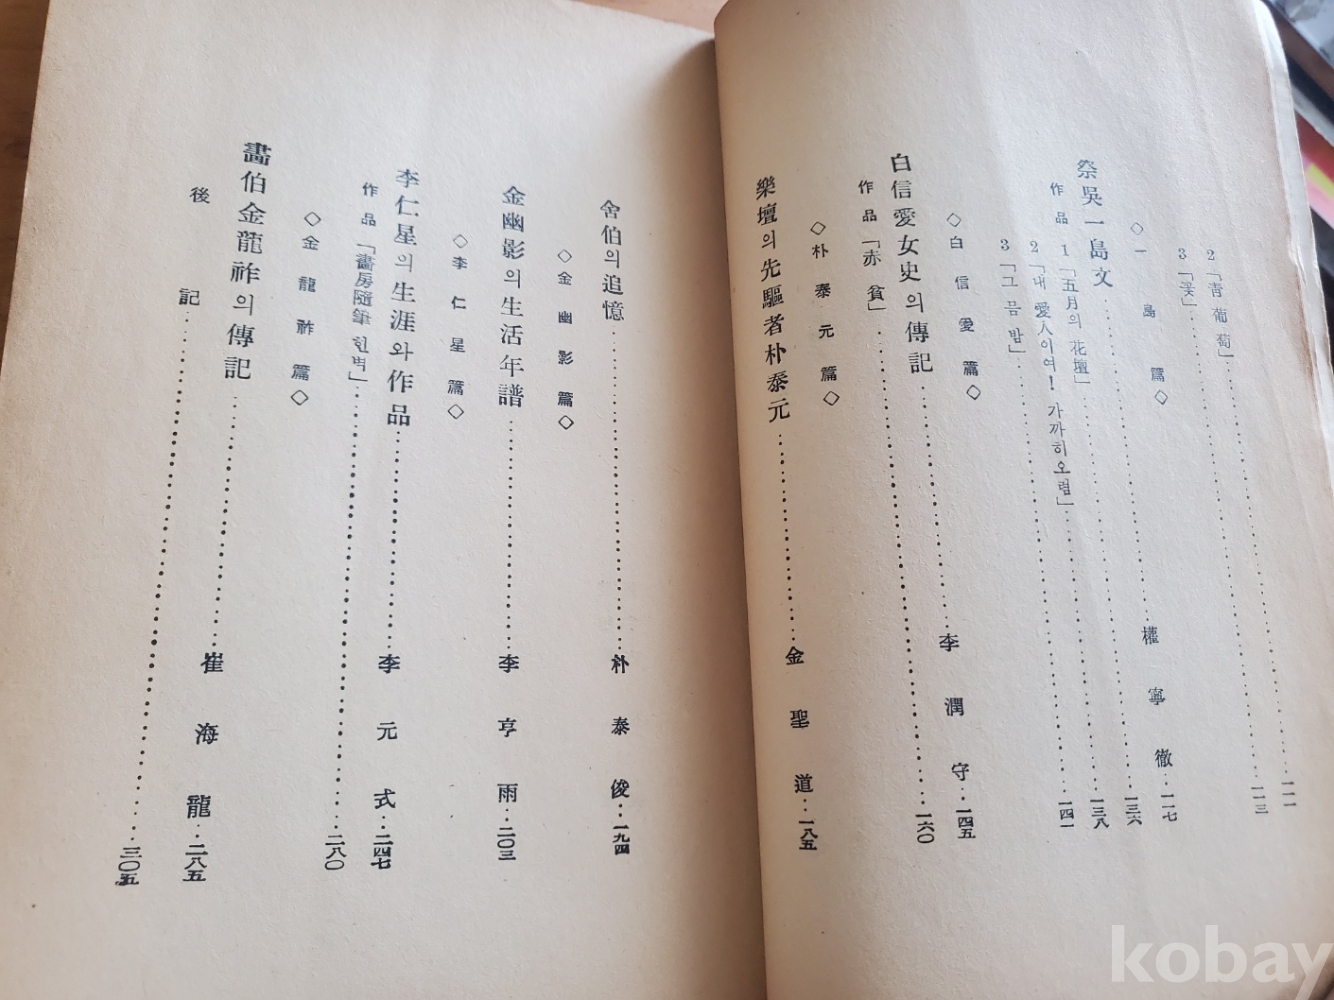 2「靑葡萄」……一一一
3「꽃」……一一三
◇一島篇◇
祭吳一島文……權寧徹…一一七
作品 1「五月의花壇」……一三六
2「내 愛人이여! 가까히오렴」……一三八
3「그믐밤」……一四一
◇白信愛篇◇
白信愛女史의傳記……李潤守…一四五
作品「赤貧」……一六〇
◇朴泰元篇◇
樂壇의先驅者朴泰元……金聖道…一八五
舍伯의追憶……朴泰俊…一九四
◇金幽影篇◇
金幽影의生活年譜……李亨雨…二〇三
◇李仁星篇◇
李仁星의生涯와作品……李元式…二四七
作品「畵房隨筆 흰벽」……二八〇
◇金龍祚篇◇
畵伯金龍祚의傳記……崔海龍…二八五
後記……三〇五
kobay